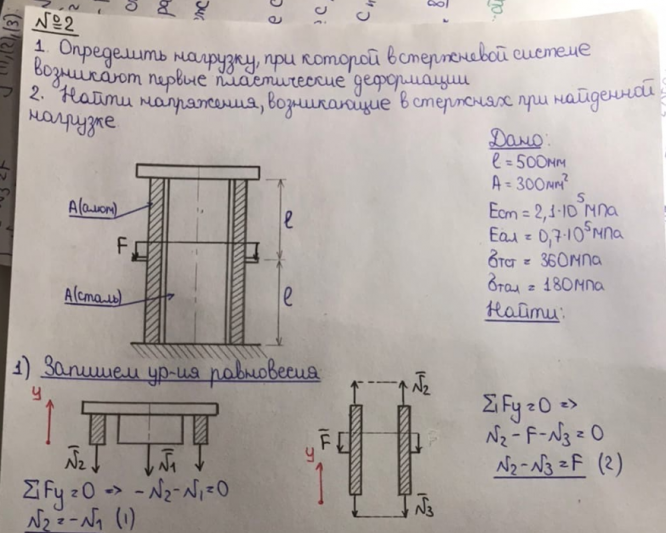 №2
1. Определить нагрузку, при которой в стержневой системе
возникают первые пластические деформации
2. Найти напряжения, возникающие в стержнях при найденной
нагрузке
Дано:
ℓ = 500мм
A = 300мм²
Eст = 2,1·10⁵МПа
Eал = 0,7·10⁵МПа
бтст = 360МПа
бтал = 180МПа
Найти:
A(алюм)
ℓ
F
A(сталь)
ℓ
1) Запишем ур-ия равновесия
y
N̅₂ N̅₁
ΣFy=0 => -N₂-N₁=0
N₂=-N₁ (1)
N̅₂
F̅
y
N̅₃
ΣFy=0 =>
N₂-F-N₃=0
N₂-N₃=F (2)